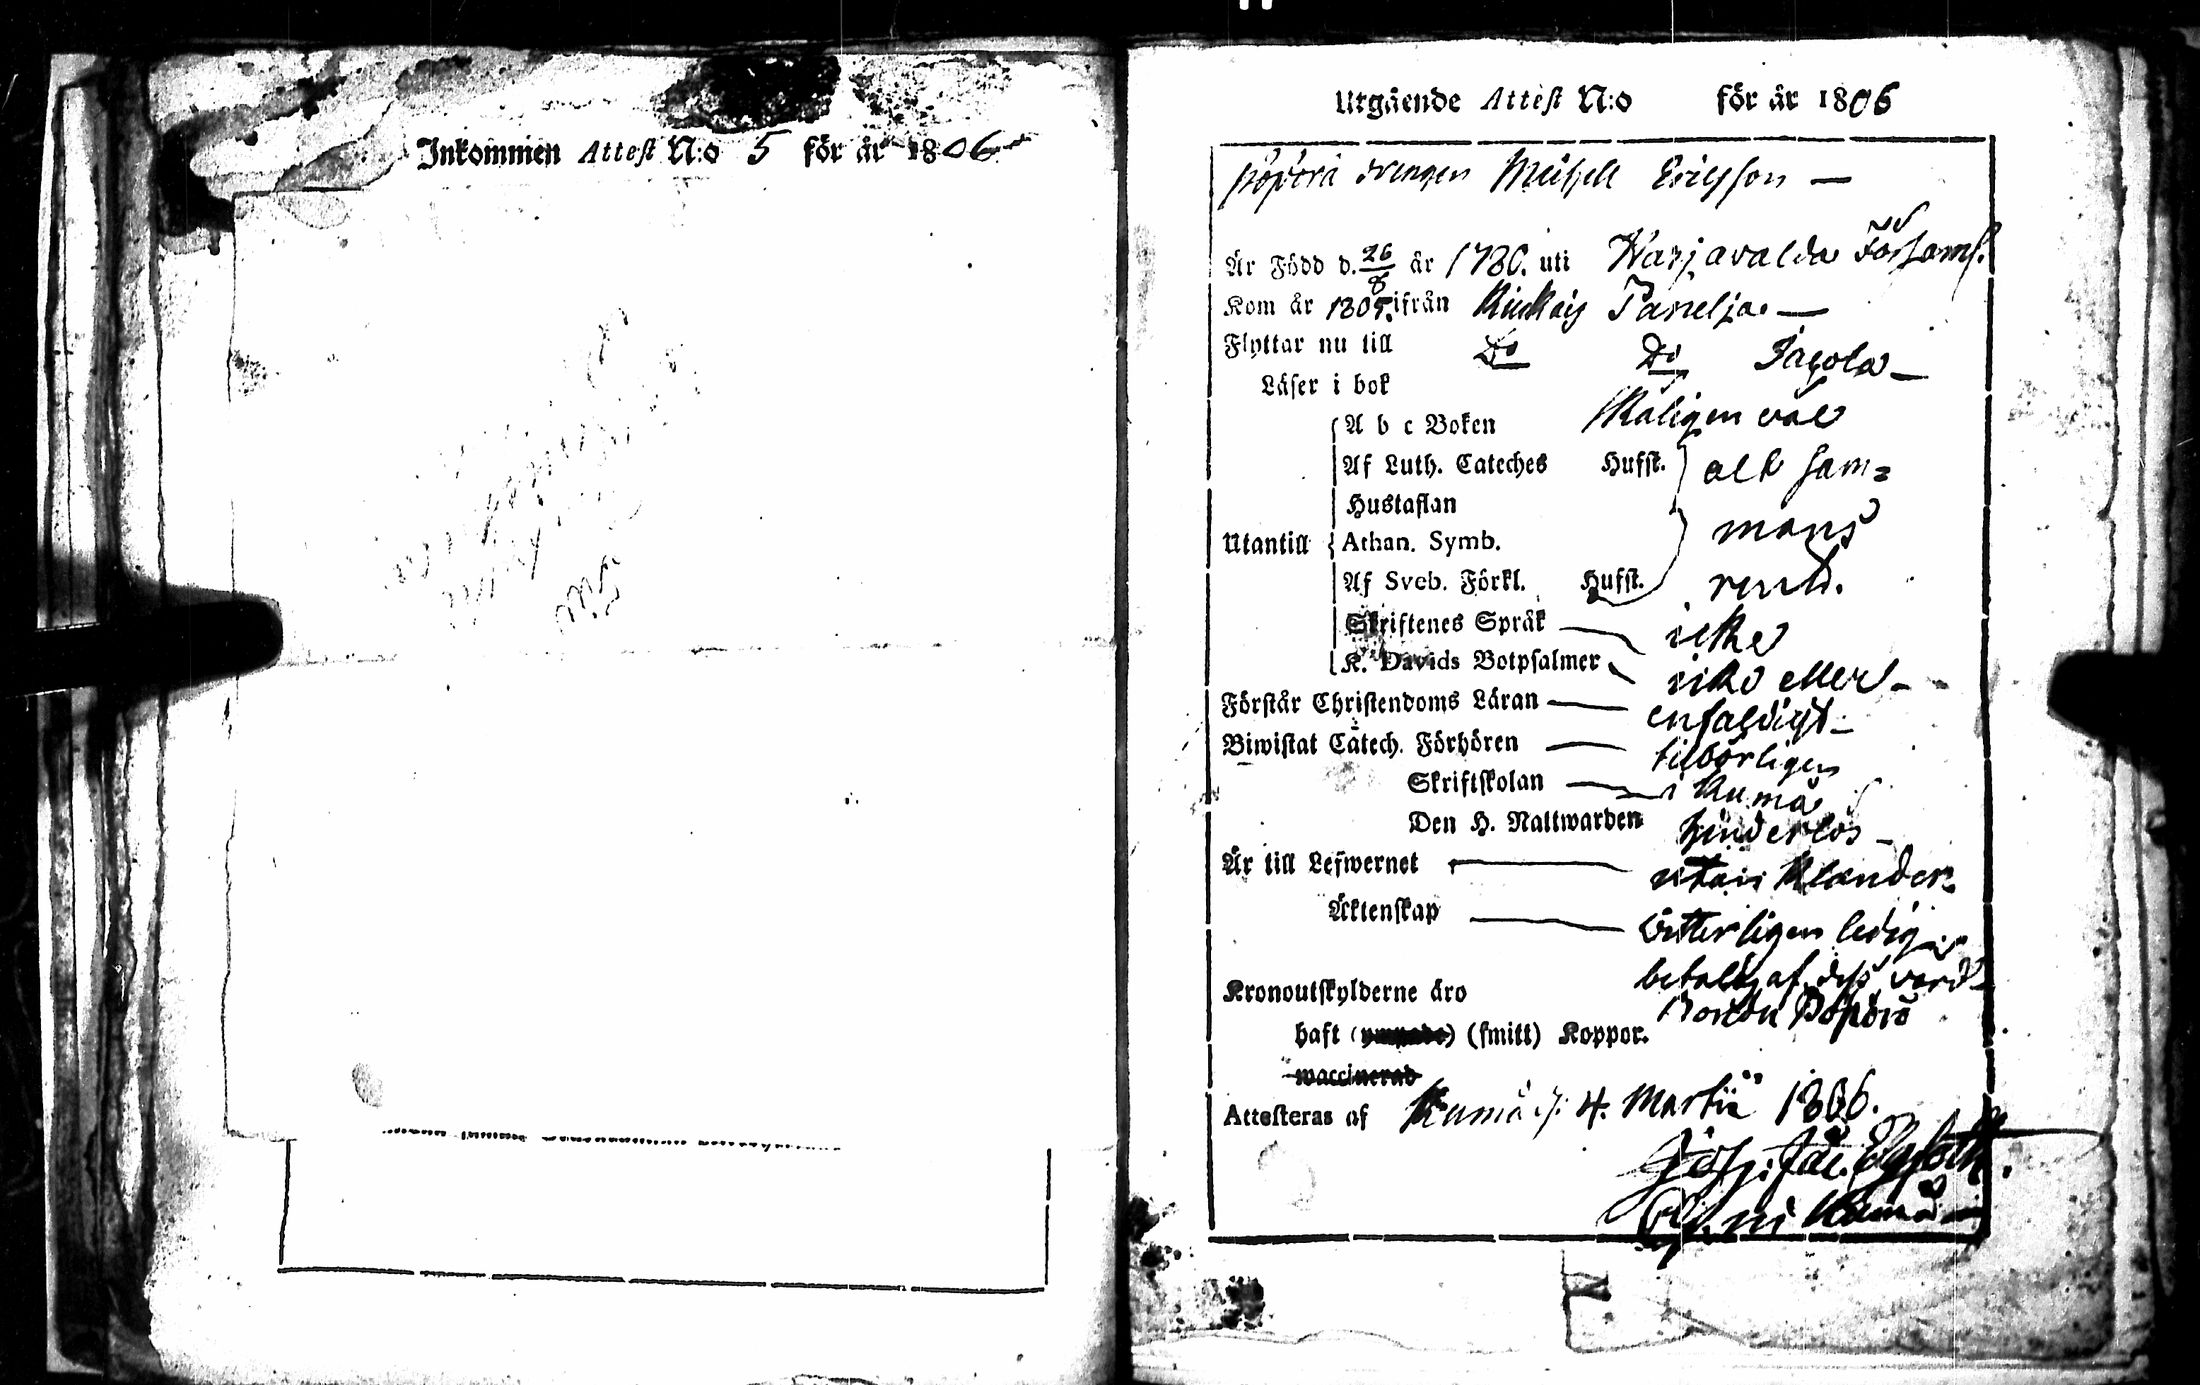 Inkommen Attest N:o 5 för år 1806
Utgående Attest N:o för år 1806
drengen Michell Ericsson —
Är Född d. 26/8 år 1780. uti Harjavalda Församl.
Kom år 1805. ifrån Kiukais Panelja. —
Flyttar nu till Do Do
Läser i bok
A b c Boken Skäligen väl
Af Luth. Cateches Hufst. alt sam=
Hustaflan mans
Utantill Athan. Symb.
Af Sveb. Förkl. Hufst.
Skriftenes Språk icke
K. Davids Botpsalmer icke eller —
Förstår Christendoms Läran — enfaldigt —
Biwistat Catech. Förhören — tilbörligen
Skriftskolan — i Kumå
Den H. Nattwarden hinderlös —
Är till Lefwernet — utan klander.
Äktenskap — witterligen ledig
Kronoutskylderne äro betald af dess värd
Bonden Pöpörö
haft (ympade) (smitt) Koppor.
waccinerad
Attesteras af Kumå d. 4. Martii 1806.
Kumå —